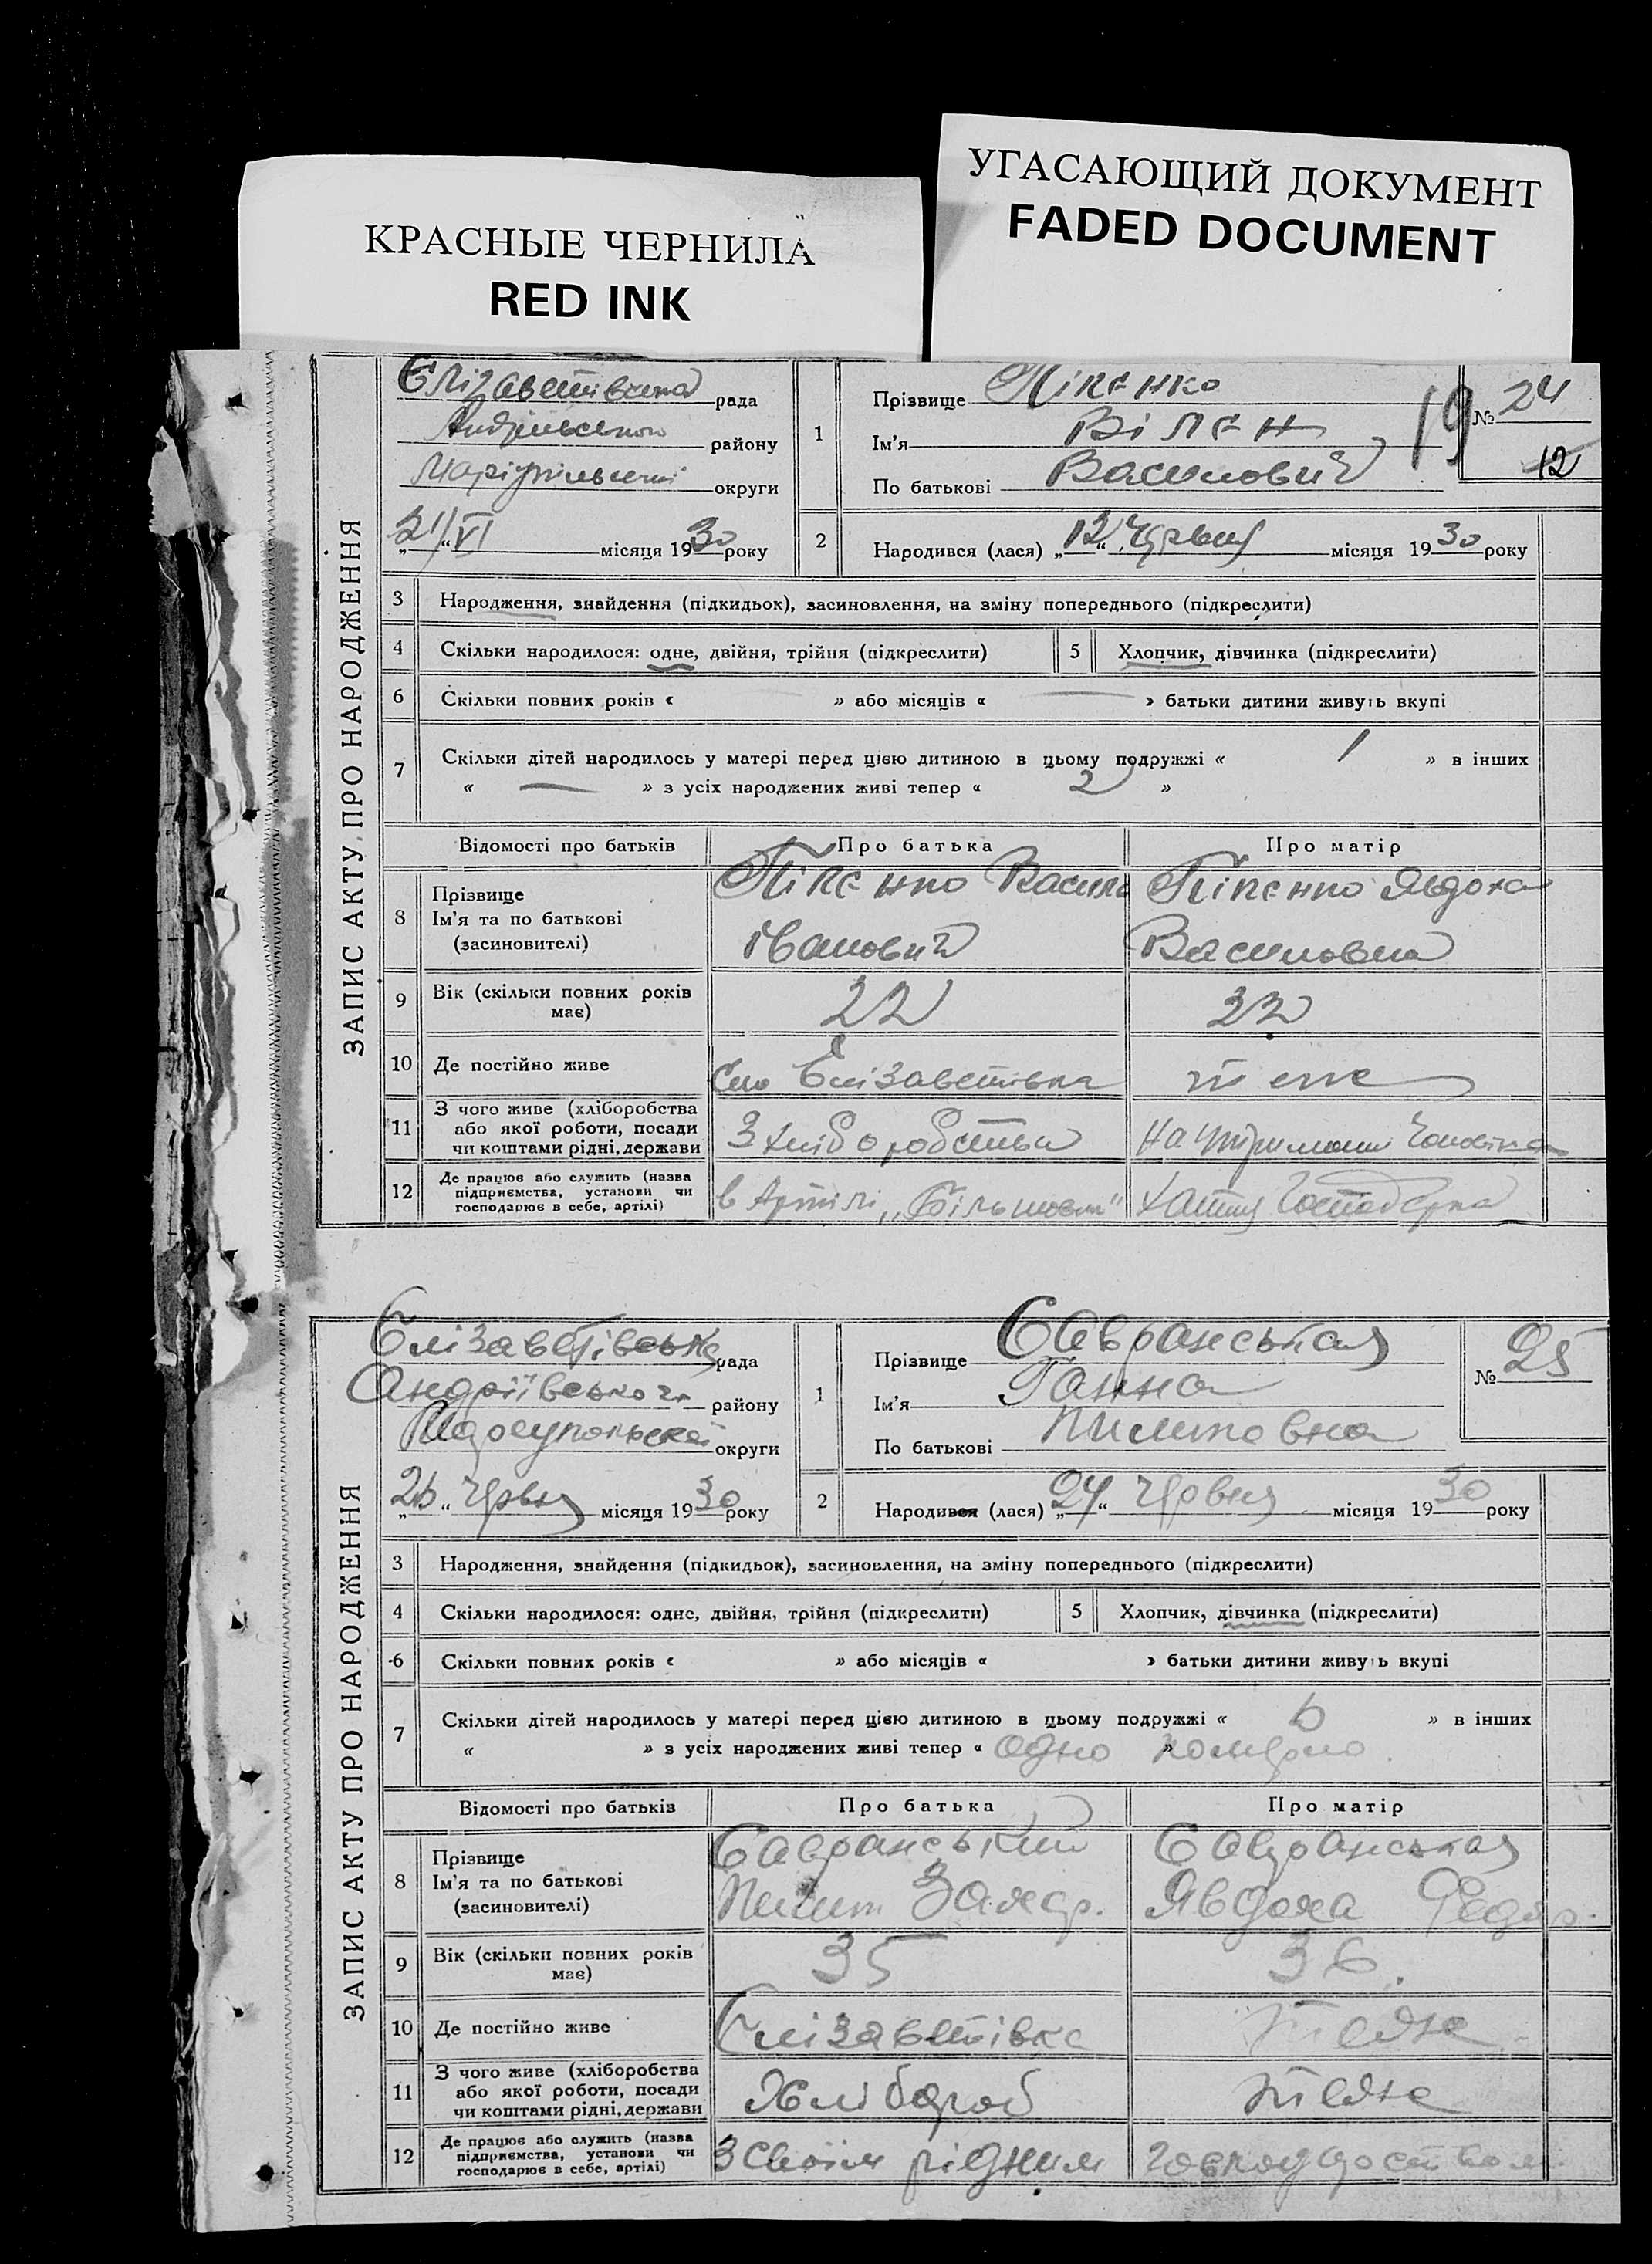 КРАСНЫЕ ЧЕРНИЛА
RED INK
УГАСАЮЩИЙ ДОКУМЕНТ
FADED DOCUMENT
ЗАПИС АКТУ ПРО НАРОДЖЕННЯ
рада
району
округи
21/VI місяця 1930 року
1
Прізвище Піпенко
Ім'я Вілен
По батькові Василович
19
№ 24
12
2
Народився (лася) „12“ Червня місяця 1930 року
3 Народження, знайдення (підкидьок), засиновлення, на зміну попереднього (підкреслити)
4 Скільки народилося: одне, двійня, трійня (підкреслити)
5 Хлопчик, дівчинка (підкреслити)
6 Скільки повних років « — » або місяців « — » батьки дитини живуть вкупі
7 Скільки дітей народилось у матері перед цією дитиною в цьому подружжі « 1 » в інших
« — » з усіх народжених живі тепер « 2 »
Відомості про батьків Про батька Про матір
8 Прізвище
Ім'я та по батькові
(засиновителі)
Піпенко Василь
Іванович
Піпенко Явдоха
Василовна
9 Вік (скільки повних років
має)
22
22
10 Де постійно живе
Село Єлізаветівка
теж
11 З чого живе (хліборобства
або якої роботи, посади
чи коштами рідні, держави
З хліборобства
На утриманні Чоловіка
12 Де працює або служить (назва
підприємства, установи чи
господарює в себе, артілі)
в Артілі „Більшовик“
ЗАПИС АКТУ ПРО НАРОДЖЕННЯ
Єлізаветівська рада
Андріївського району
округи
„26“ Червня місяця 1930 року
1
Прізвище Савранськая
Ім'я Ганна
По батькові Пилиповна
№ 25
2
Народився (лася) „24“ Червня місяця 1930 року
3 Народження, знайдення (підкидьок), засиновлення, на зміну попереднього (підкреслити)
4 Скільки народилося: одне, двійня, трійня (підкреслити)
5 Хлопчик, дівчинка (підкреслити)
6 Скільки повних років « » або місяців « » батьки дитини живуть вкупі
7 Скільки дітей народилось у матері перед цією дитиною в цьому подружжі « 6 » в інших
« » з усіх народжених живі тепер « одно » померло.
Відомості про батьків Про батька Про матір
8 Прізвище
Ім'я та по батькові
(засиновителі)
Савранський
Пилип Захар.
Савранськая
Явдоха Федор.
9 Вік (скільки повних років
має)
35
36.
10 Де постійно живе
Єлізаветівка
теж
11 З чого живе (хліборобства
або якої роботи, посади
чи коштами рідні, держави
Хлібороб
теж
12 Де працює або служить (назва
підприємства, установи чи
господарює в себе, артілі)
З своїм рідним
господарством